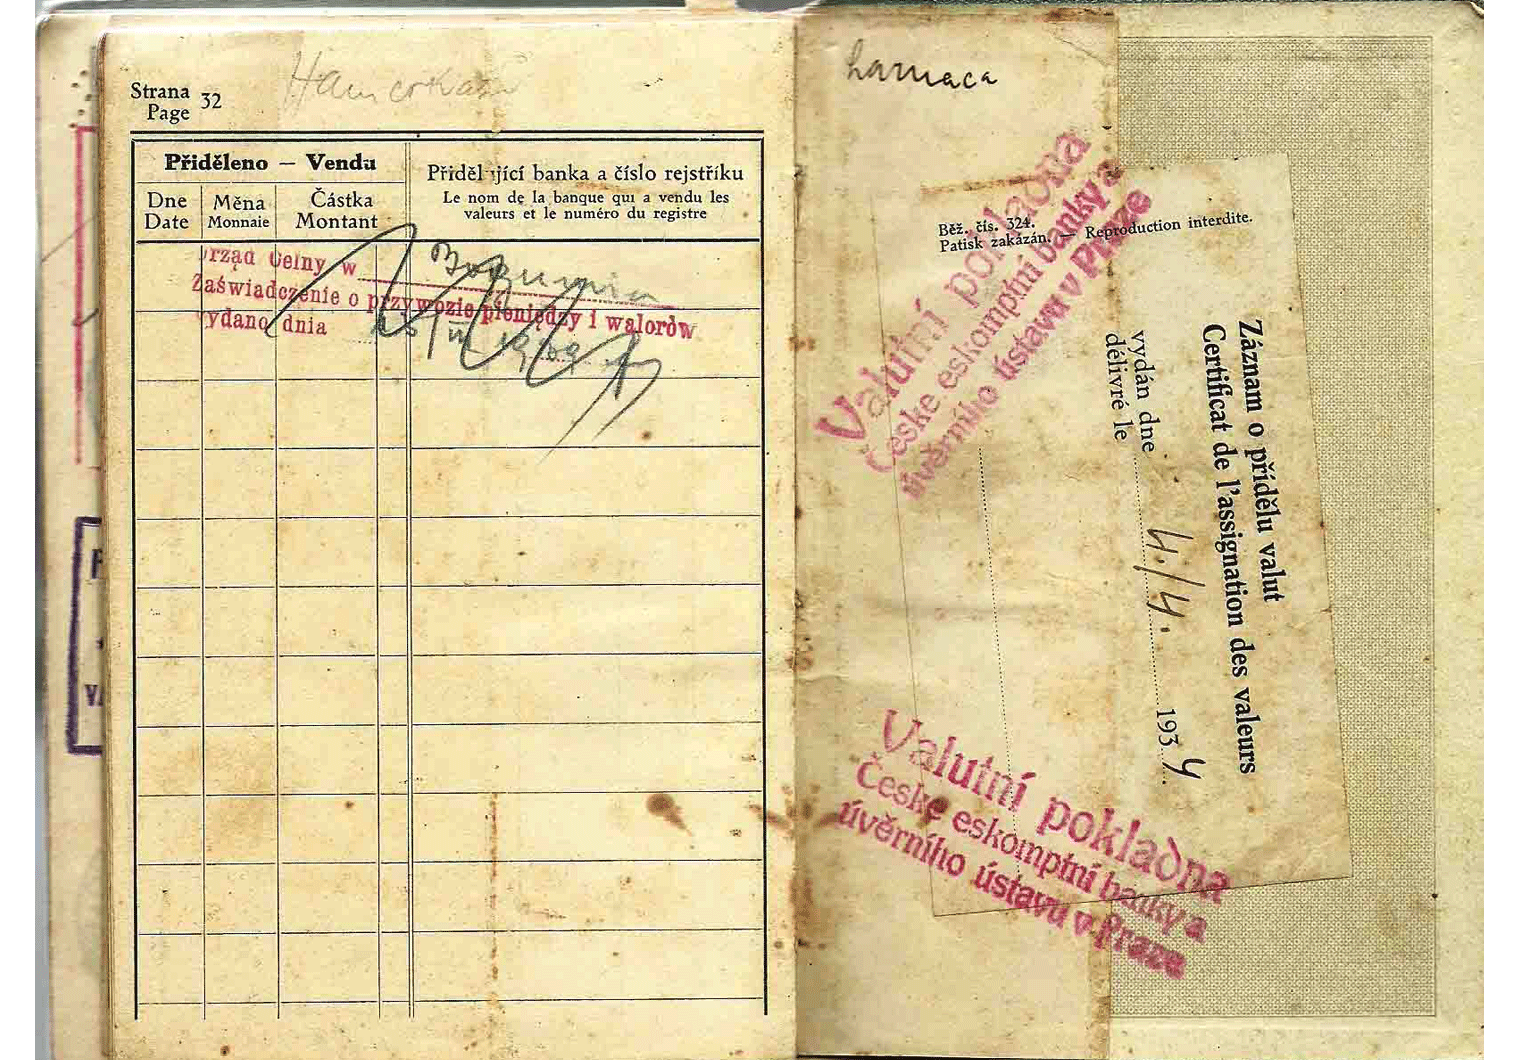 Strana
Page 32
Přiděleno — Vendu
Dne
Date
Měna
Monnaie
Částka
Montant
Přidělující banka a číslo rejstříku
Le nom de la banque qui a vendu les
valeurs et le numéro du registre
Urząd Celny w
Zaświadczenie o przywozie pieniędzy i walorów
wydano dnia
Larnaca
Valutní pokladna
České eskomptní banky a
úvěrního ústavu v Praze
Běž. čís. 324.
Patisk zakázán. — Reproduction interdite.
Záznam o přídělu valut
Certificat de l'assignation des valeurs
vydán dne
délivré le
4./4. 1939
Valutní pokladna
České eskomptní banky a
úvěrního ústavu v Praze